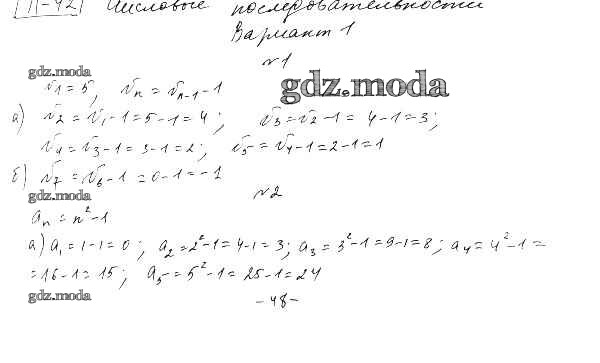 П-42 Числовые последовательности
Вариант 1
№1
gdz.moda
gdz.moda
v1 = 5, vn = vn-1 - 1
а) v2 = v1 - 1 = 5 - 1 = 4; v3 = v2 - 1 = 4 - 1 = 3;
v4 = v3 - 1 = 3 - 1 = 2; v5 = v4 - 1 = 2 - 1 = 1
б) v7 = v6 - 1 = 0 - 1 = -1
gdz.moda
№2
an = n² - 1
а) a1 = 1 - 1 = 0; a2 = 2² - 1 = 4 - 1 = 3; a3 = 3² - 1 = 9 - 1 = 8; a4 = 4² - 1 =
= 16 - 1 = 15; a5 = 5² - 1 = 25 - 1 = 24
gdz.moda
- 48 -